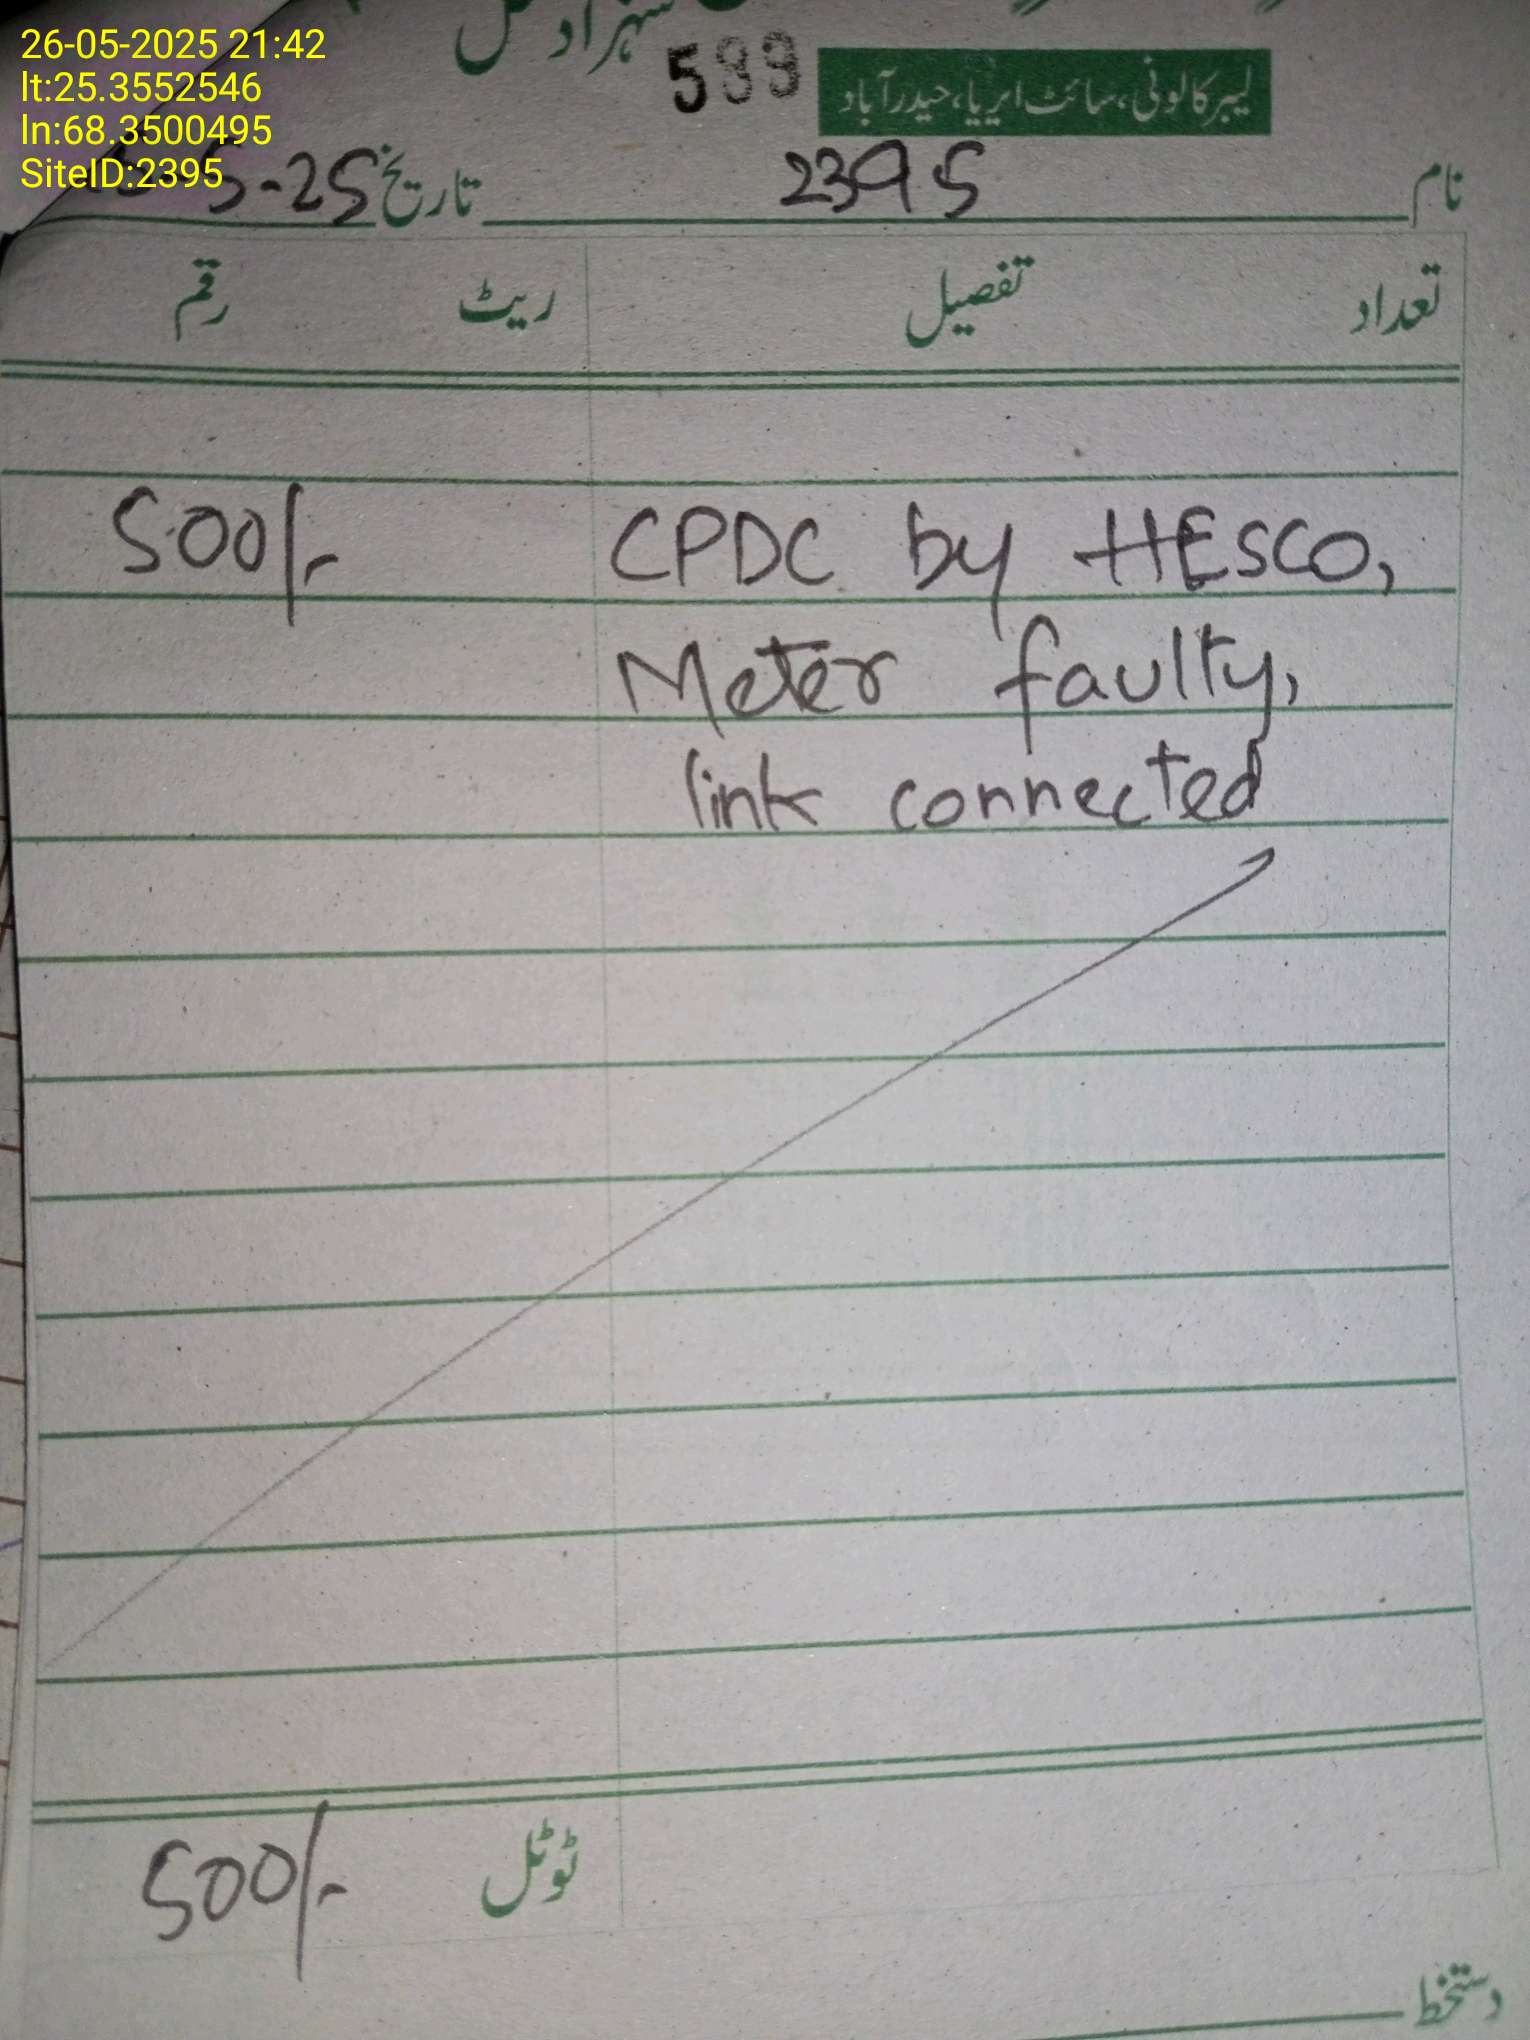 26-05-2025 21:42
lt:25.3552546
ln:68.3500495
SiteID:2395
شہزاد
599
لیبر کالونی، سائٹ ایریا، حیدرآباد
نام 2395 تاریخ 5-25
تعداد تفصیل ریٹ رقم
CPDC by HESCO, 500/-
Meter faulty,
link connected
ٹوٹل 500/-
دستخط